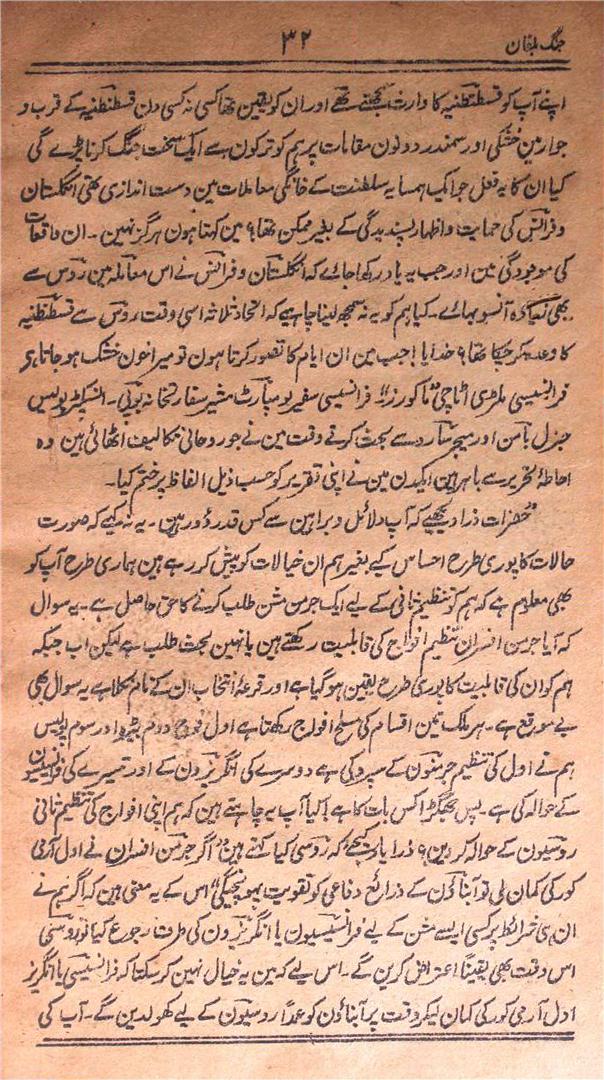 جنگ بلقان ۳۲
اپنے آپ کو قسطنطنیہ کا وارث سمجھتے تھے اور ان کو یقین تھا کسی نہ کسی دن قسطنطنیہ کے قرب و
جوار مین خشکی اور سمندر دونون مقامات پر ہم کو ترکون سے ایک سخت جنگ کرنا پڑے گی
کیا ان کا یہ فعل جو ایک ہمسایہ سلطنت کے خانگی معاملات مین دست اندازی تھی انگلستان
و فرانس کی حمایت و اظہار پسندیدگی کے بغیر ممکن تھا؟ مین کہتا ہون ہرگز نہین ۔ ان واقعات
کی موجودگی مین اور جب یہ یاد رکھا جائے کہ انگلستان و فرانس نے اس معاملہ مین روس سے
بھی زیادہ آنسو بہائے ۔ کیا ہم کو یہ نہ سمجھ لینا چاہیے کہ اتحاد ثلاثہ اسی وقت روس سے قسطنطنیہ
کا وعدہ کر چکا تھا؟ خدایا! جب مین ان ایام کا تصور کرتا ہون تو میرا خون خشک ہو جاتا ہے
فرانسیسی ملٹری اٹاچی "ماکورز"، فرانسیسی سفیر بومپارٹ مشیر سفارتخانہ بوپی ۔ انسپکٹر پولیس
جنرل بامن اور میجر سارد سے بحث کرتے وقت مین نے جو روحانی تکالیف اٹھائی ہین وہ
احاطۂ تحریر سے باہر ہین ایکدن مین نے اپنی تقریر کو حسب ذیل الفاظ پر ختم کیا ۔
"حضرات ذرا دیکھیے کہ آپ دلائل و براہین سے کس قدر دور ہین ۔ یہ نہ کہیے کہ صورت
حالات کا پوری طرح احساس کیے بغیر ہم ان خیالات کو پیش کر رہے ہین ہماری طرح آپ کو
بھی معلوم ہے کہ ہم کو تنظیم ثانی کے لیے ایک جرمن مشن طلب کرنے کا حق حاصل ہے ۔ یہ سوال
کہ آیا جرمن افسران تنظیم افواج کی قابلیت رکھتے ہین یا نہین بحث طلب ہے لیکن اب جبکہ
ہم کو ان کی قابلیت کا پوری طرح یقین ہو گیا ہے اور قرعۂ انتخاب ان کے نام نکلا ہے یہ سوال بھی
بے موقع ہے ۔ ہر ملک تین اقسام کی مسلح افواج رکھتا ہے اول فوج دوم بیڑہ اور سوم پولیس
ہم نے اول کی تنظیم جرمنون کے سپرد کی ہے دوسرے کی انگریزون کے اور تیسرے کی فرانسیسیون
کے حوالہ کی ہے ۔ پس جھگڑا کس بات کا ہے آیا آپ یہ چاہتے ہین کہ ہم اپنی افواج کی تنظیم ثانی
روسیون کے حوالہ کر دین؟ ذرا یاد کیجیے کہ روسی کیا کہتے ہین "اگر جرمن افسران نے اول آرمی
کور کی کمان لی تو آبناؤن کے ذرائع دفاعی کو تقویت پہونچیگی" اس کے یہ معنی ہین کہ اگر ہم نے
ان ہی شرائط پر کسی ایسے مشن کے لیے فرانسیسیون یا انگریزون کی طرف رجوع کیا تو روسی
اس وقت بھی یقیناً اعتراض کرین گے ۔ اس لیے کہ مین یہ خیال نہین کر سکتا کہ فرانسیسی یا انگریز
اول آرمی کور کی کمان لیکر وقت پر آبناؤن کو عمداً روسیون کے لیے کھولدین گے ۔ آپ کی